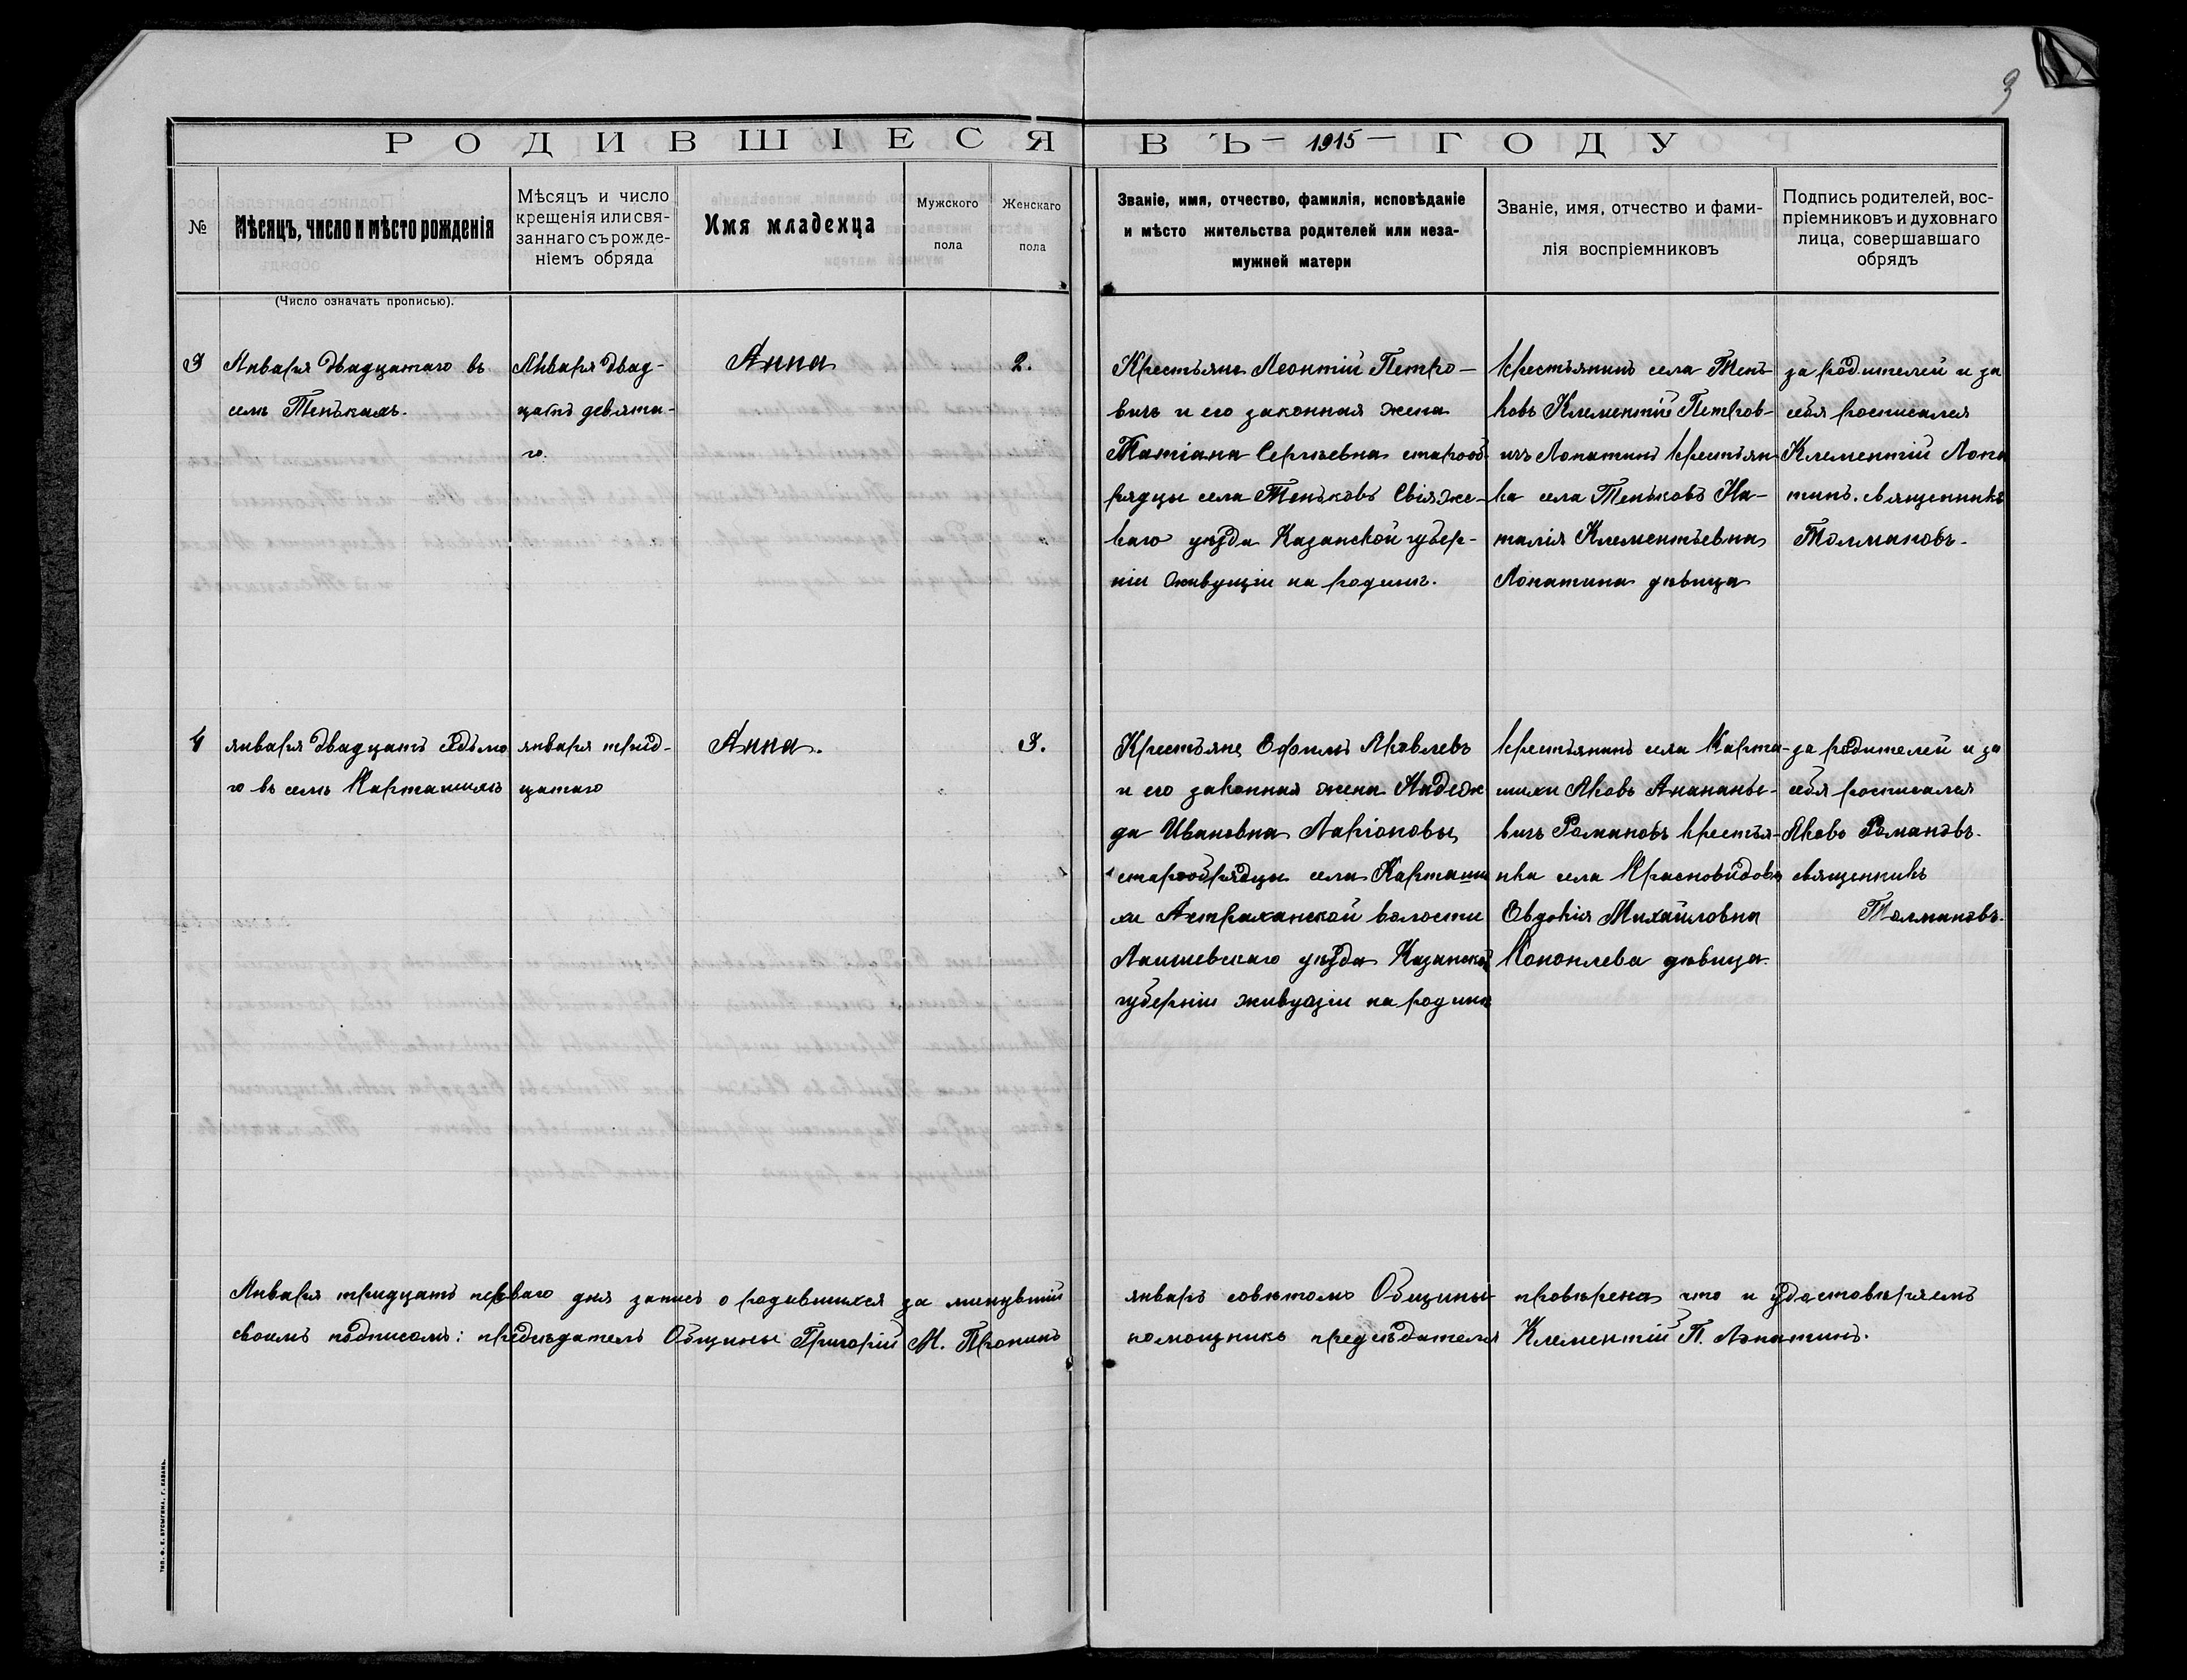 3
РОДИВШІЕСЯ ВЪ 1915 ГОДУ
№
Мѣсяцъ, число и мѣсто рожденія
Мѣсяцъ и число
крещенія или свя-
заннаго съ рожде-
ніемъ обряда
Имя младенца
Мужского
пола
Женскаго
пола
Званіе, имя, отчество, фамилія, исповѣданіе
и мѣсто жительства родителей или неза-
мужней матери
Званіе, имя, отчество и фами-
лія воспріемниковъ
Подпись родителей, вос-
пріемниковъ и духовнаго
лица, совершавшаго
обрядъ
(Число означать прописью).
3
Января двадцатаго въ
селѣ Тенькахъ.
Января двад-
цать девята-
го.
Анна
2.
Крестьяне Леонтій Петро-
вичъ и его законная жена
Татіана Сергѣевна старооб-
рядцы села Теньковъ Свіяже-
каго уѣзда Казанской губер-
ніи живущіи на родинѣ.
крестьянинъ села Тень-
ковъ Клементій Петров-
ичъ Лопатинъ крестьян-
ка села Теньковъ На-
талія Клементьевна
Лопатина дѣвица
за родителей и за
себя росписался
Клементій Лопа
тинъ. священникъ
Толмановъ.
4
января двадцать седьмо
го въ селѣ Карташихѣ
января трид-
цатаго
Анна.
3.
Крестьяне Офилъ Яковлевъ
и его законная жена Надеж
да Ивановна Ларіоновы
старообрядцы села Карташи
хи Астраханской волости
Лаишевскаго уѣзда Казанской
губерніи живущіи на родинѣ
крестьянинъ села Карта-
шихи Яковъ Ананье-
вичъ Романовъ крестья-
нка села Красновидова
Овдокія Михайловна
Коноплева дѣвица.
за родителей и за
себя росписался
Яковъ Романовъ.
священникъ
Толмановъ.
Января тридцать перваго дня запись о родившихся за минувшій январь совѣтомъ Общины провѣрена что и удостовѣряемъ
своимъ подписомъ: предсѣдатель Общины Григорій М. Пронинъ помощникъ предсѣдателя Клементій П. Лопатинъ.
ТИП. Ф. Е. БУСЫГИНА, Г. КАЗАНЬ.